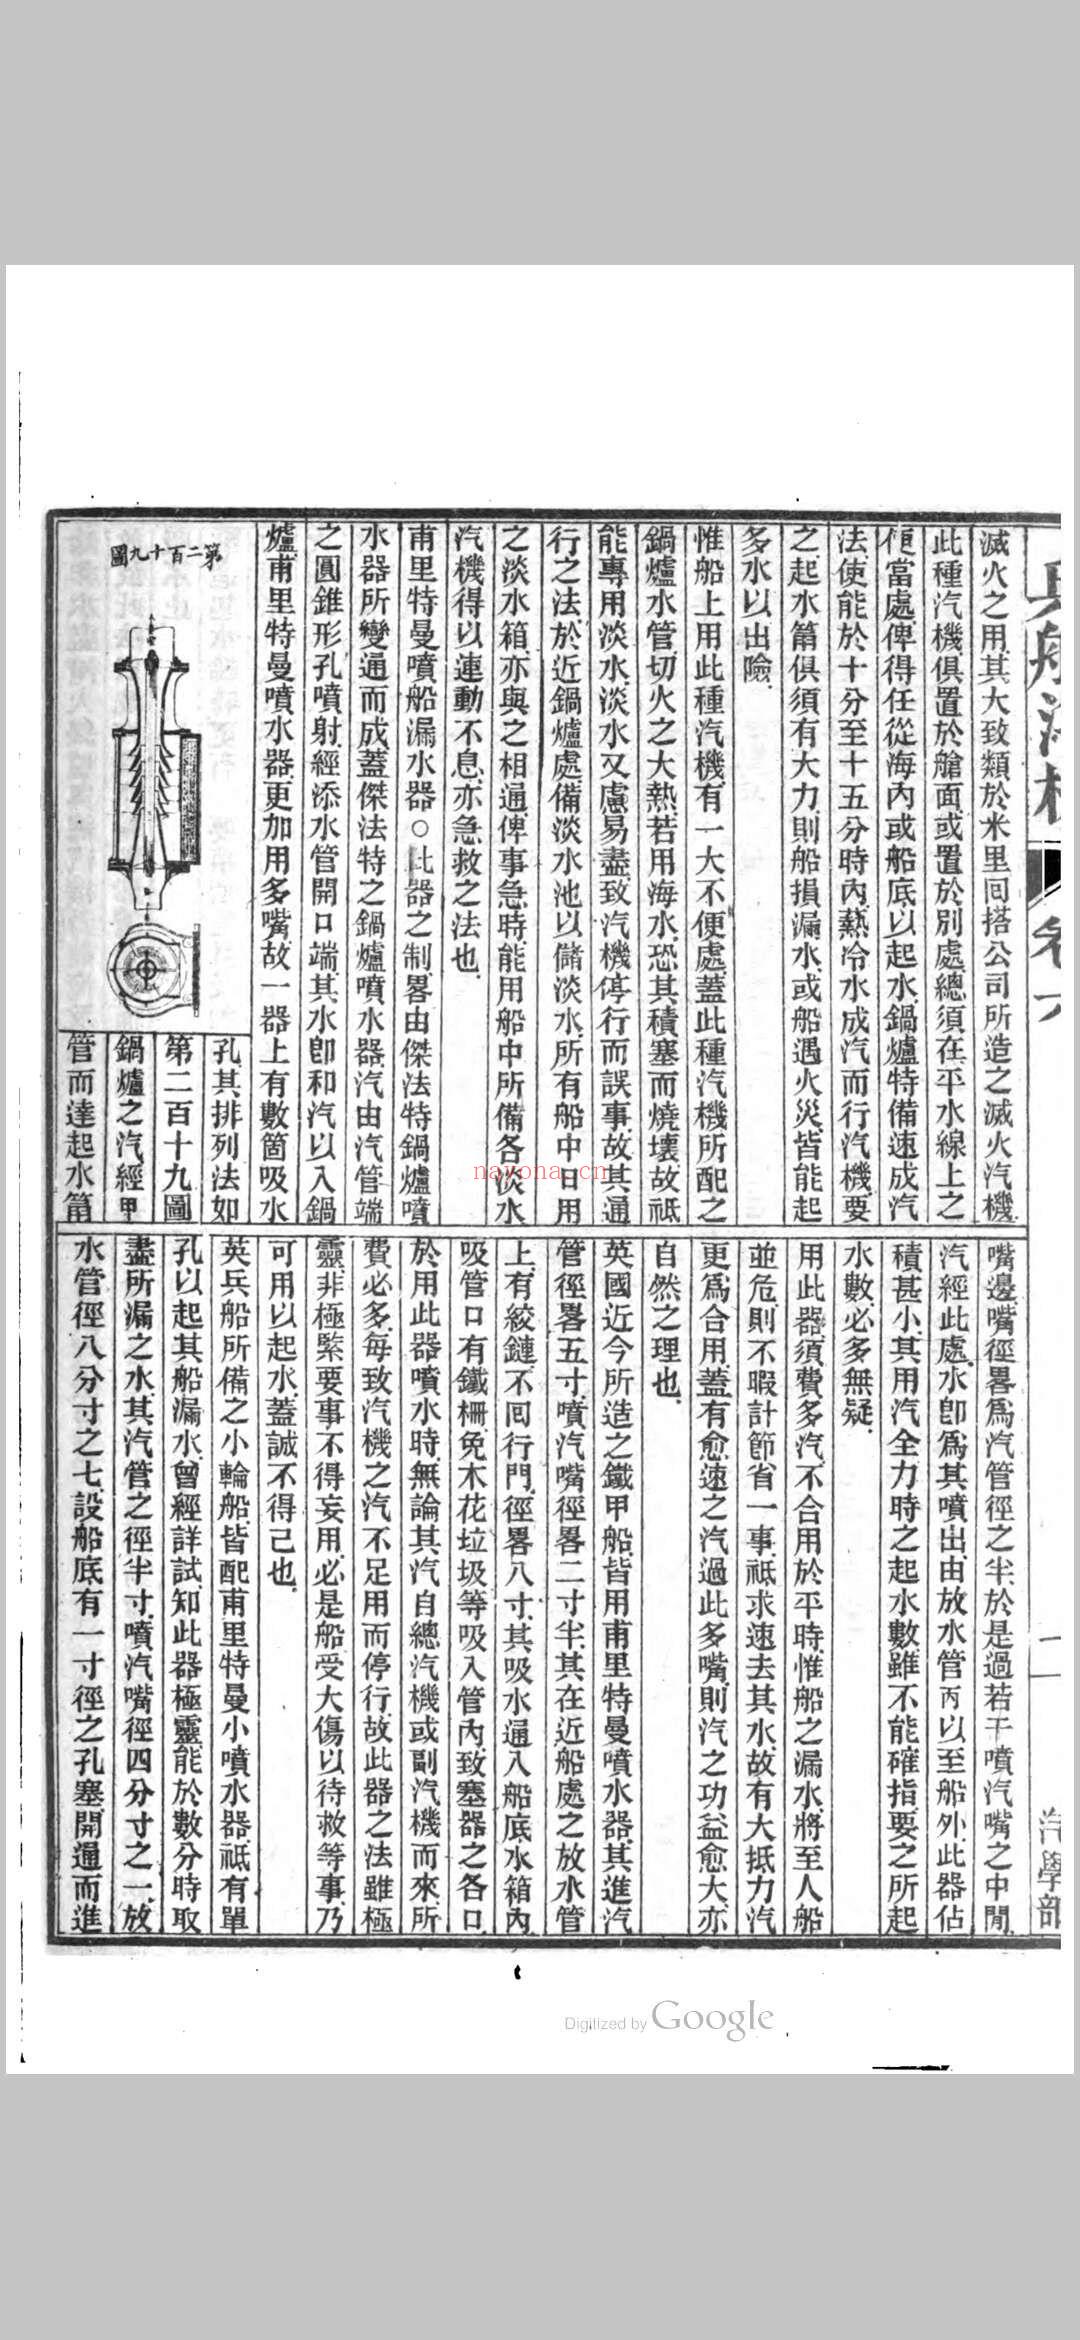 兵船汽機
卷六
二
汽學部
滅火之用.其大致類於米里囘搭公司所造之滅火汽機.
此種汽機俱置於艙面.或置於別處.總須在平水線上之
便當處.俾得任從海內或船底以起水.鍋爐特備速成汽
法.使能於十分至十五分時內.熱冷水成汽而行汽機.要
之.起水筩俱須有大力.則船損漏水.或船遇火災.皆能起
多水以出險.
惟船上用此種汽機.有一大不便處.蓋此種汽機所配之
鍋爐水管.切火之大熱.若用海水.恐其積塞而燒壞.故祗
能專用淡水.淡水又慮易盡.致汽機停行而誤事.故其通
行之法.於近鍋爐處備淡水池.以儲淡水.所有船中日用
之淡水箱.亦與之相通.俾事急時.能用船中所備各淡水.
汽機得以連動不息.亦急救之法也.
甫里特曼噴船漏水器○此器之制.畧由傑法特鍋爐噴
水器所變通而成.蓋傑法特之鍋爐噴水器.汽由汽管端
之圓錐形孔噴射.經添水管開口端.其水卽和汽以入鍋
爐.甫里特曼噴水器.更加用多嘴.故一器上有數箇吸水
孔.其排列法如
第二百十九圖
鍋爐之汽.經甲
管而達起水筩
第二百十九圖
嘴邊.嘴徑畧爲汽管徑之半.於是過若干噴汽嘴之中閒.
汽經此處.水卽爲其噴出.由放水管丙以至船外.此器佔
積甚小.其用汽全力時之起水數.雖不能確指.要之所起
水數必多無疑.
用此器須費多汽.不合用於平時.惟船之漏水.將至人船
並危.則不暇計節省一事.祗求速去其水.故有大抵力汽
更爲合用.蓋有愈速之汽過此多嘴.則汽之功益愈大.亦
自然之理也.
英國近今所造之鐵甲船.皆用甫里特曼噴水器.其進汽
管徑畧五寸.噴汽嘴徑畧二寸半.其在近船處之放水管
上.有絞鏈.不囘行門.徑畧八寸.其吸水通入船底水箱內.
吸管口有鐵柵.免木花垃圾等吸入管內.致塞器之各口.
於用此器噴水時.無論其汽自總汽機或副汽機而來.所
費必多.每致汽機之汽不足用而停行.故此器之法雖極
靈.非極緊要事.不得妄用.必是船受大傷以待救等事.乃
可用以起水.蓋誠不得已也.
英兵船所備之小輪船.皆配甫里特曼小噴水器.祗有單
孔.以起其船漏水.曾經詳試.知此器極靈.能於數分時取
盡所漏之水.其汽管之徑半寸.噴汽嘴徑四分寸之一.放
水管徑八分寸之七.設船底有一寸徑之孔塞.開通而進
nayona.cn
Digitized by Google